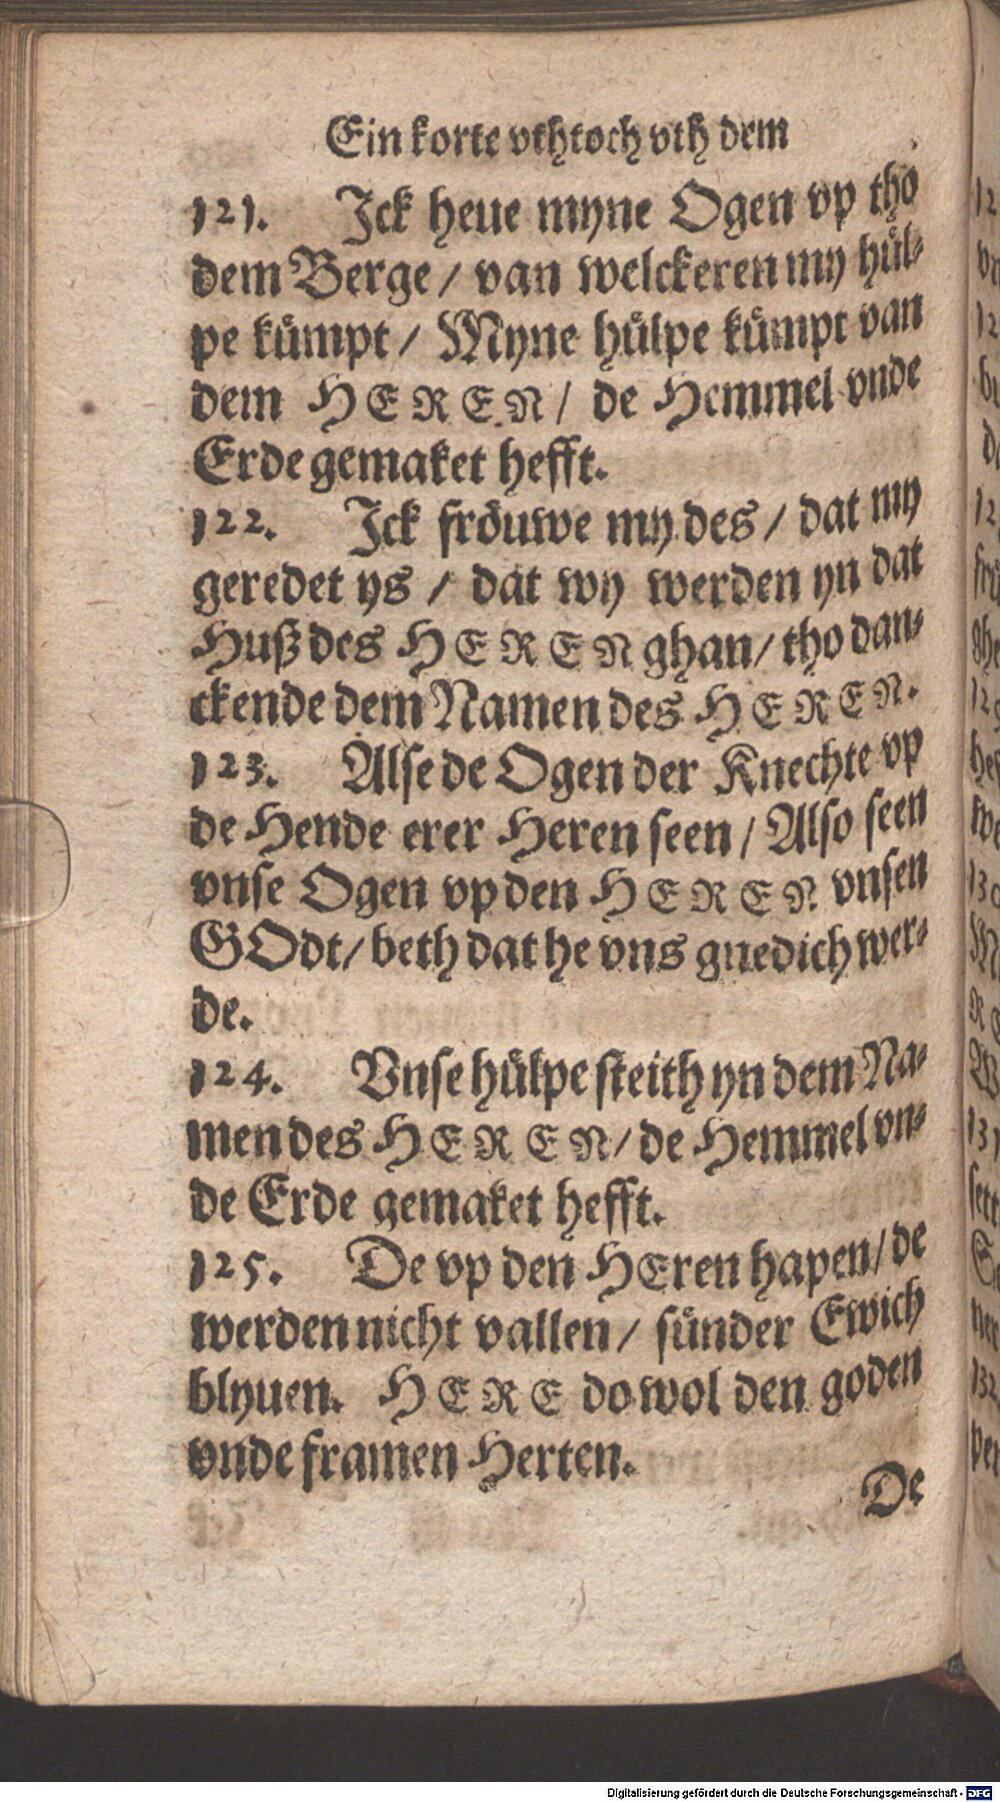 Ein korte vthtoch vth dem
121. Jck heue myne Ogen vp tho
dem Berge / van welckeren my huͤl⸗
pe kuͤmpt / Myne huͤlpe kuͤmpt van
dem HEREN / de Hemmel vnde
Erde gemaket hefft.
122. Jck froͤuwe my des / dat my
geredet ys / dat wy werden yn dat
Huß des HEREN ghan / tho dan⸗
ckende dem Namen des HEREN.
123. Alse de Ogen der Knechte vp
de Hende erer Heren seen / Also seen
vnse Ogen vp den HEREN vnsen
GOdt / beth dat he vns gnedich wer⸗
de.
124. Vnse huͤlpe steith yn dem Na⸗
men des HEREN / de Hemmel vn⸗
de Erde gemaket hefft.
125. De vp den HEren hapen / de
werden nicht vallen / suͤnder Ewich
blyuen. HERE do wol den goden
vnde framen Herten.
De
Digitalisierung gefördert durch die Deutsche Forschungsgemeinschaft - DFG